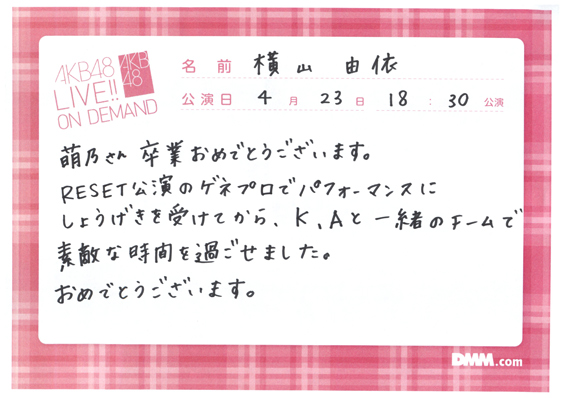 AKB48
LIVE!!
ON DEMAND
AKB
48
名前 横山 由依
公演日 4月 23日 18:30 公演
萌乃さん 卒業おめでとうございます。
RESET公演のゲネプロでパフォーマンスに
しょうげきを受けてから、K、Aと一緒のチームで
素敵な時間を過ごせました。
おめでとうございます。
DMM.com